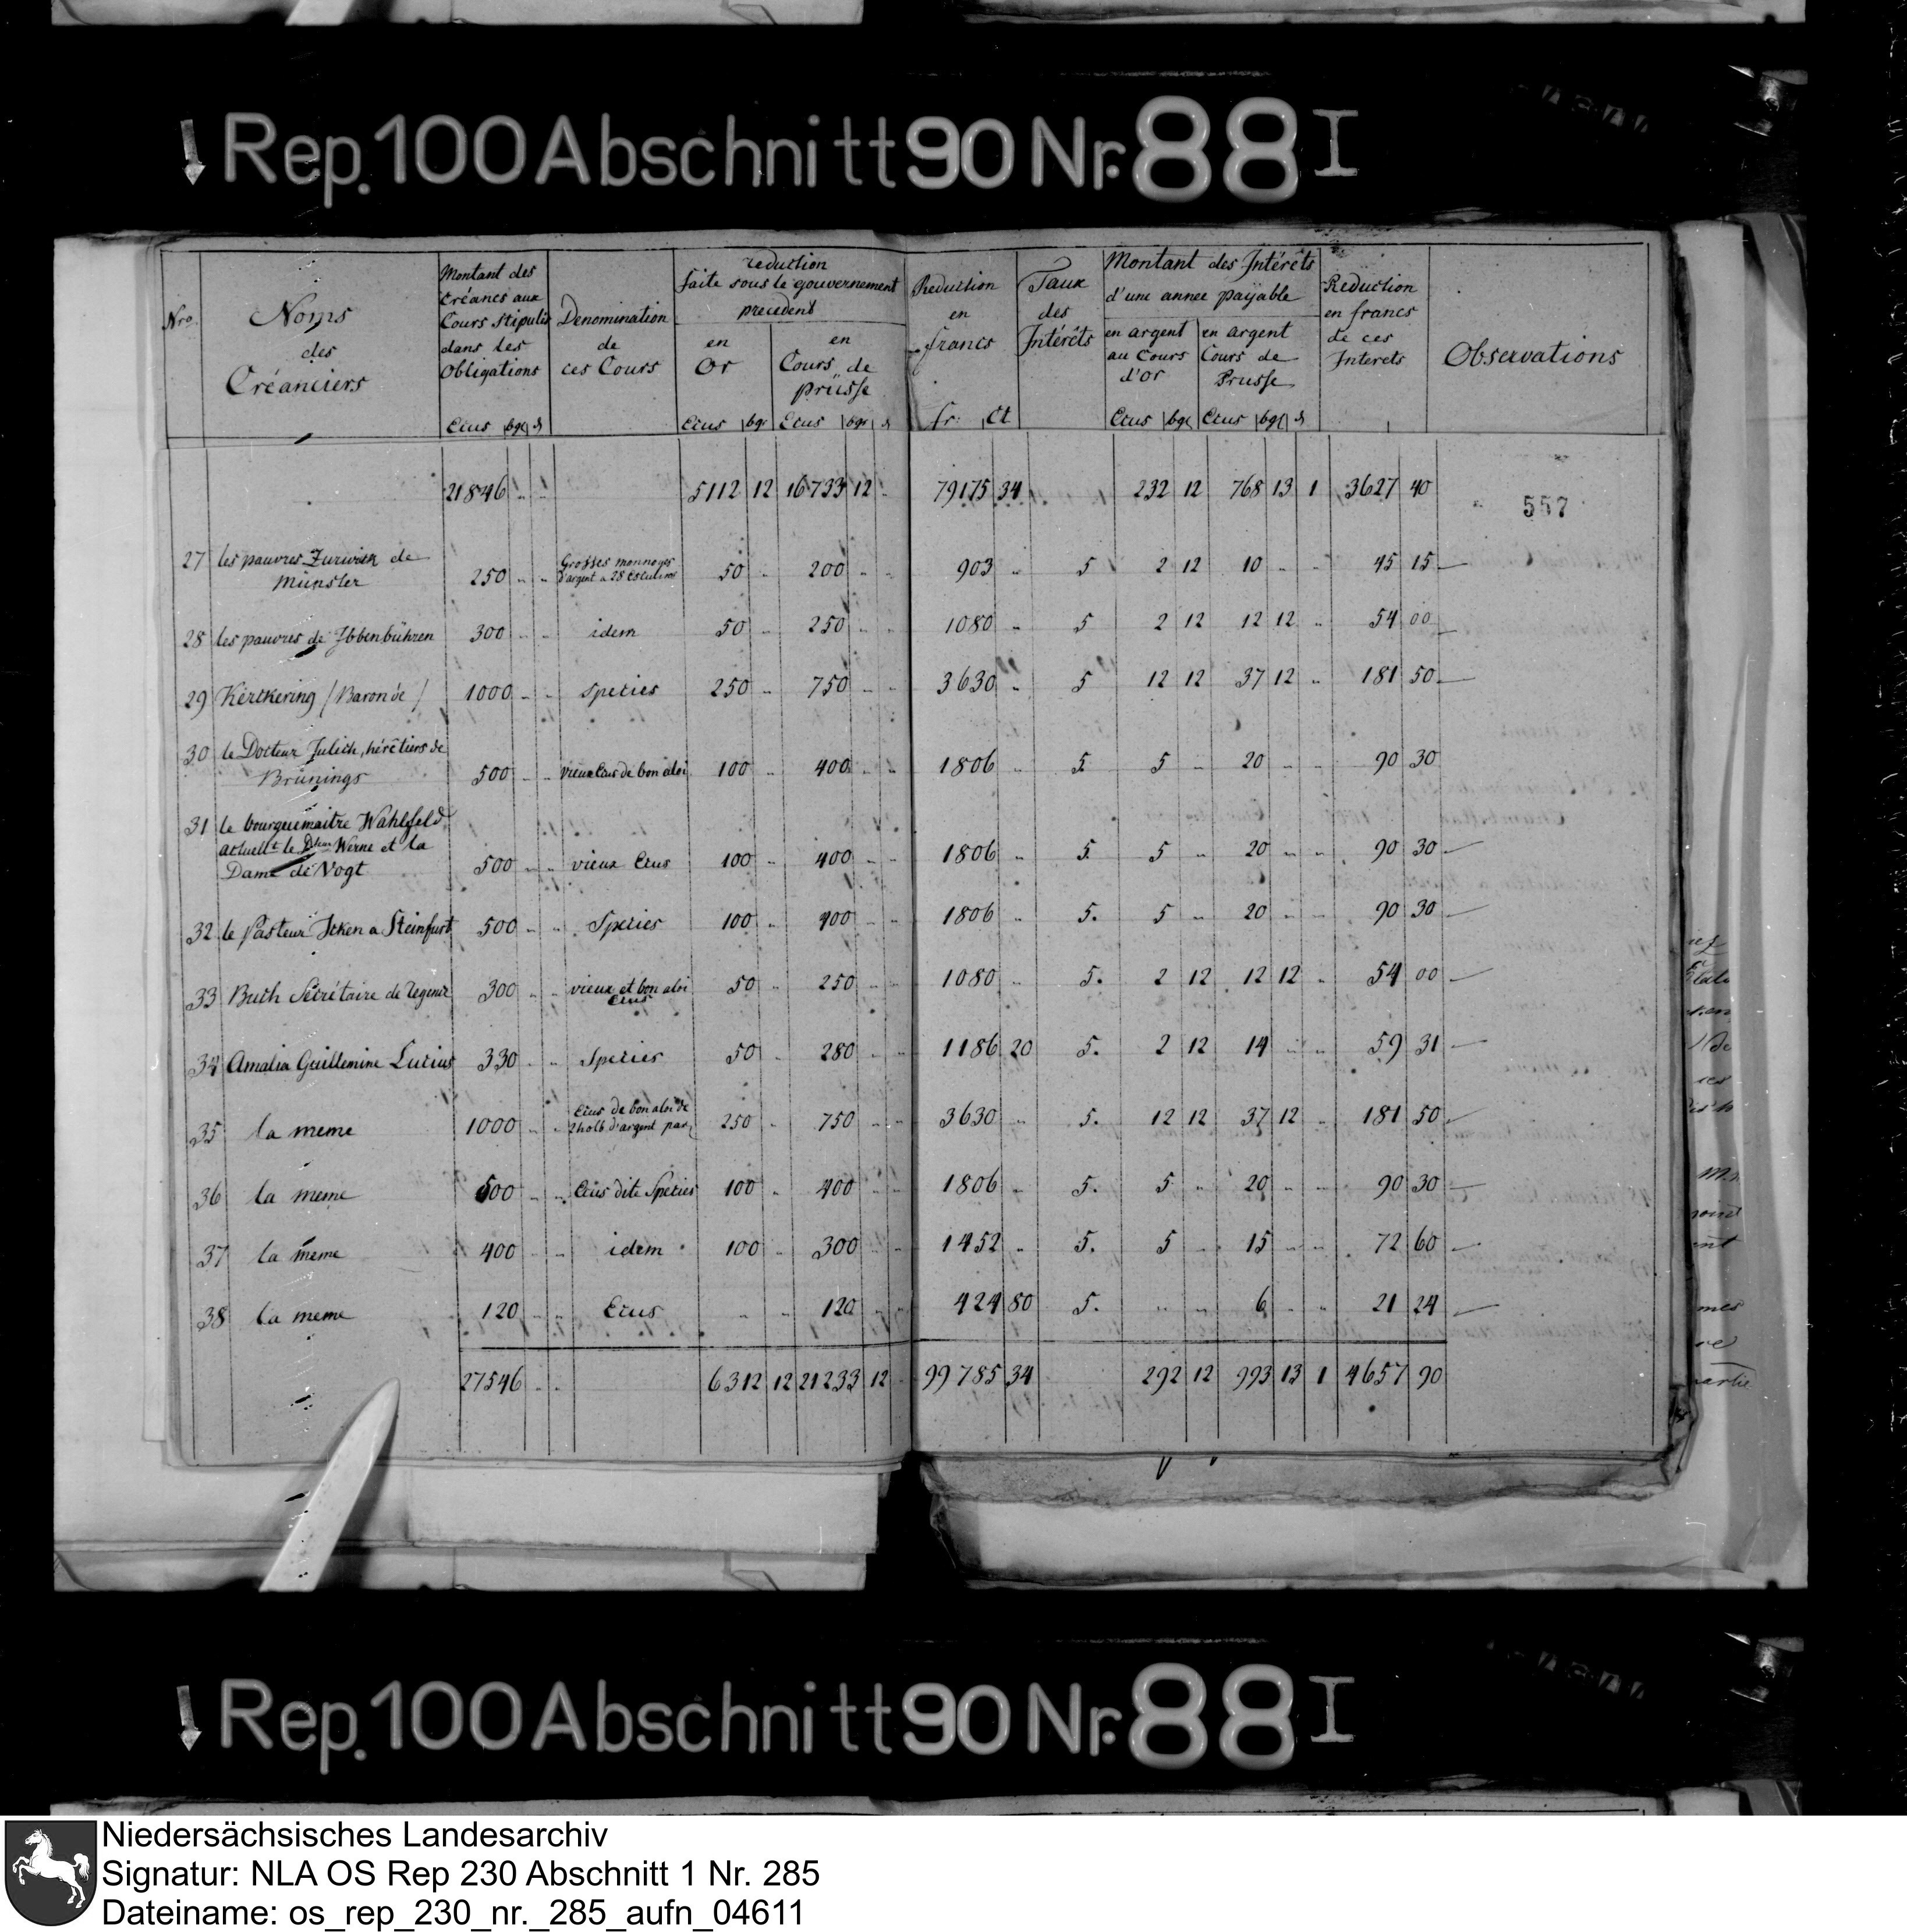 Rep. 100 Abschnitt 90 Nr. 88 I
Nro. | Noms des Créanciers | Montant des Créances aux Cours stipulés dans les Obligations Ecus bgr d | Denomination de ces Cours | reduction faite sous le gouvernement precedent en Or Ecus bgr | en Cours de prusse Ecus bgr d | Reduction en francs fr: Ct | Taux des Intérêts | Montant des Intérêts d'une annee payable en argent au Cours d'or Ecus bgr | en argent Cours de Prusse Ecus bgr d | Reduction en francs de ces Interets | Observations
21846 .. .. | 5112 12 | 16733 12 .. | 79175 34 | 232 12 | 768 13 1 | 3627 40
557
27 les pauvres Zurwick de
Münster | 250 .. .. | Grosses monnoyes d'argent a 28 | 50 .. | 200 .. .. | 903 .. | 5 | 2 12 | 10 .. .. | 45 15
28 les pauvres de Ibbenbühren | 300 .. .. | idem | 50 .. | 250 .. .. | 1080 .. | 5 | 2 12 | 12 12 .. | 54 00
29 Kerckering / Baron de / | 1000 .. .. | Species | 250 .. | 750 .. .. | 3630 .. | 5 | 12 12 | 37 12 .. | 181 50
30 le Docteur Julich, hérêtiers de
Brünings | 500 .. .. | vieux Ecus de bon aloi | 100 .. | 400 .. .. | 1806 .. | 5 | 5 .. | 20 .. .. | 90 30
31 le bourguemaitre Wahlfeld
actuellt le Dteur Werne et la
Dame de Vogt | 500 .. .. | vieux Ecus | 100 .. | 400 .. .. | 1806 .. | 5. | 5 .. | 20 .. .. | 90 30
32 le Pasteur Icken a Steinfurt | 500 .. .. | Species | 100 .. | 400 .. .. | 1806 .. | 5. | 5 .. | 20 .. .. | 90 30
33 Buch Sécrétaire de regence | 300 .. .. | vieux et bon aloi Ecus | 50 .. | 250 .. .. | 1080 .. | 5. | 2 12 | 12 12 .. | 54 00
34 Amalia Guillemine Lucius | 330 .. .. | Species | 50 .. | 280 .. .. | 1186 20 | 5. | 2 12 | 14 .. .. | 59 31
35 la meme | 1000 .. .. | Ecus de bon aloi de 2 holb d'argent par | 250 .. | 750 .. .. | 3630 .. | 5. | 12 12 | 37 12 .. | 181 50
36 la meme | 500 .. .. | Ecus dite Species | 100 .. | 400 .. .. | 1806 .. | 5. | 5 .. | 20 .. .. | 90 30
37 la meme | 400 .. .. | idem | 100 .. | 300 .. .. | 1452 .. | 5. | 5 .. | 15 .. .. | 72 60
38 la meme | 120 .. .. | Ecus | .. .. | 120 .. .. | 424 80 | 5. | .. .. | 6 .. .. | 21 24
27546 .. .. | 6312 12 | 21233 12 .. | 99785 34 | 292 12 | 993 13 1 | 4657 90
Rep. 100 Abschnitt 90 Nr. 88 I
Niedersächsisches Landesarchiv
Signatur: NLA OS Rep 230 Abschnitt 1 Nr. 285
Dateiname: os_rep_230_nr._285_aufn_04611